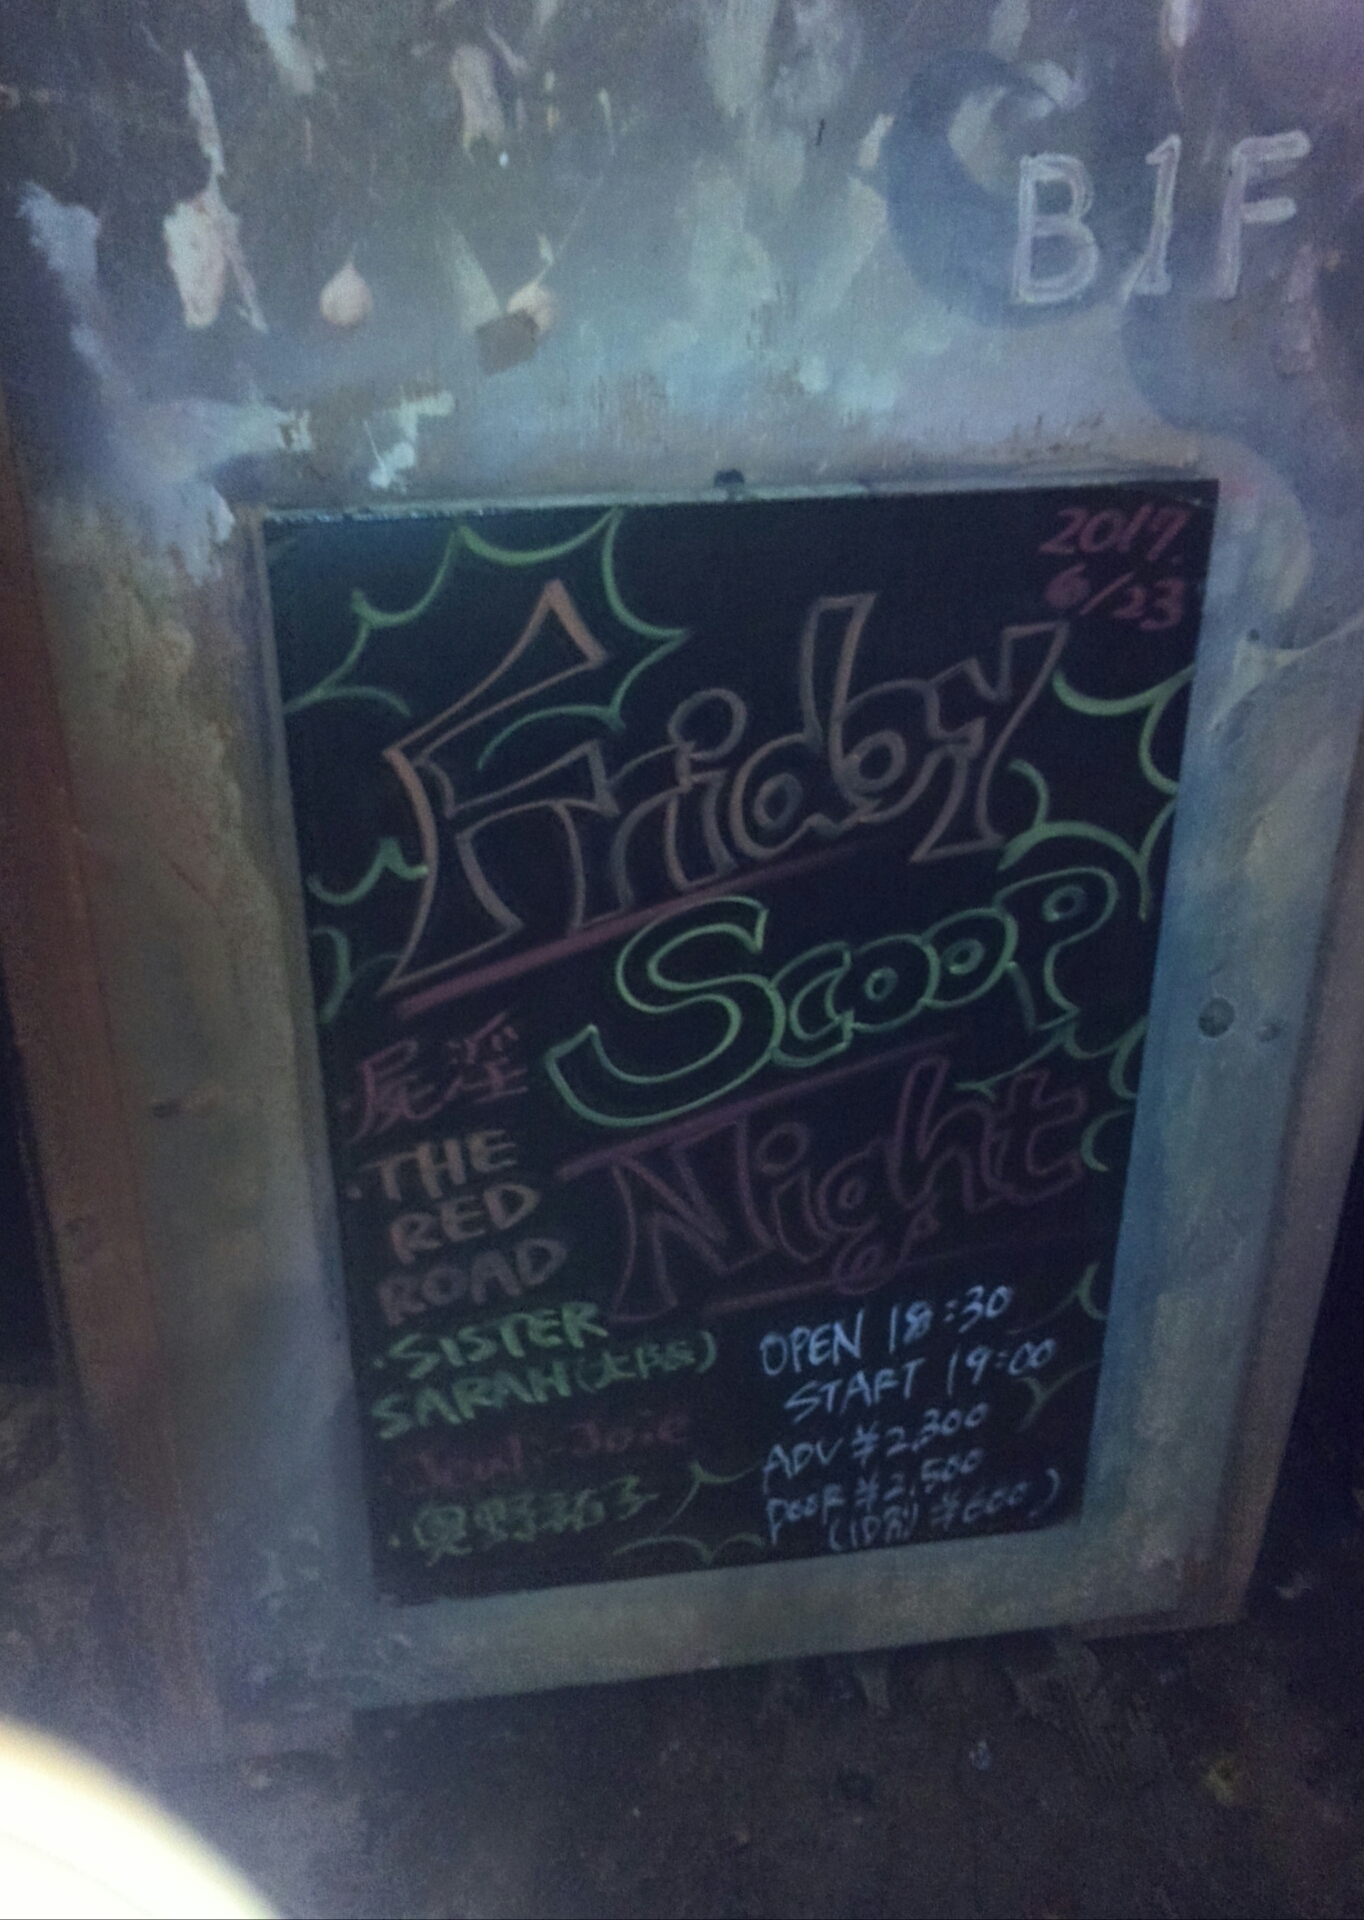 B1F
2017.
6/23
Friday
Scoop
Night
・屍淫
・THE
RED
ROAD
・SISTER
SARAH(大阪)
・奥野祐子
OPEN 18:30
START 19:00
ADV ¥2,300
DOOR ¥2,500
(1D別 ¥600)